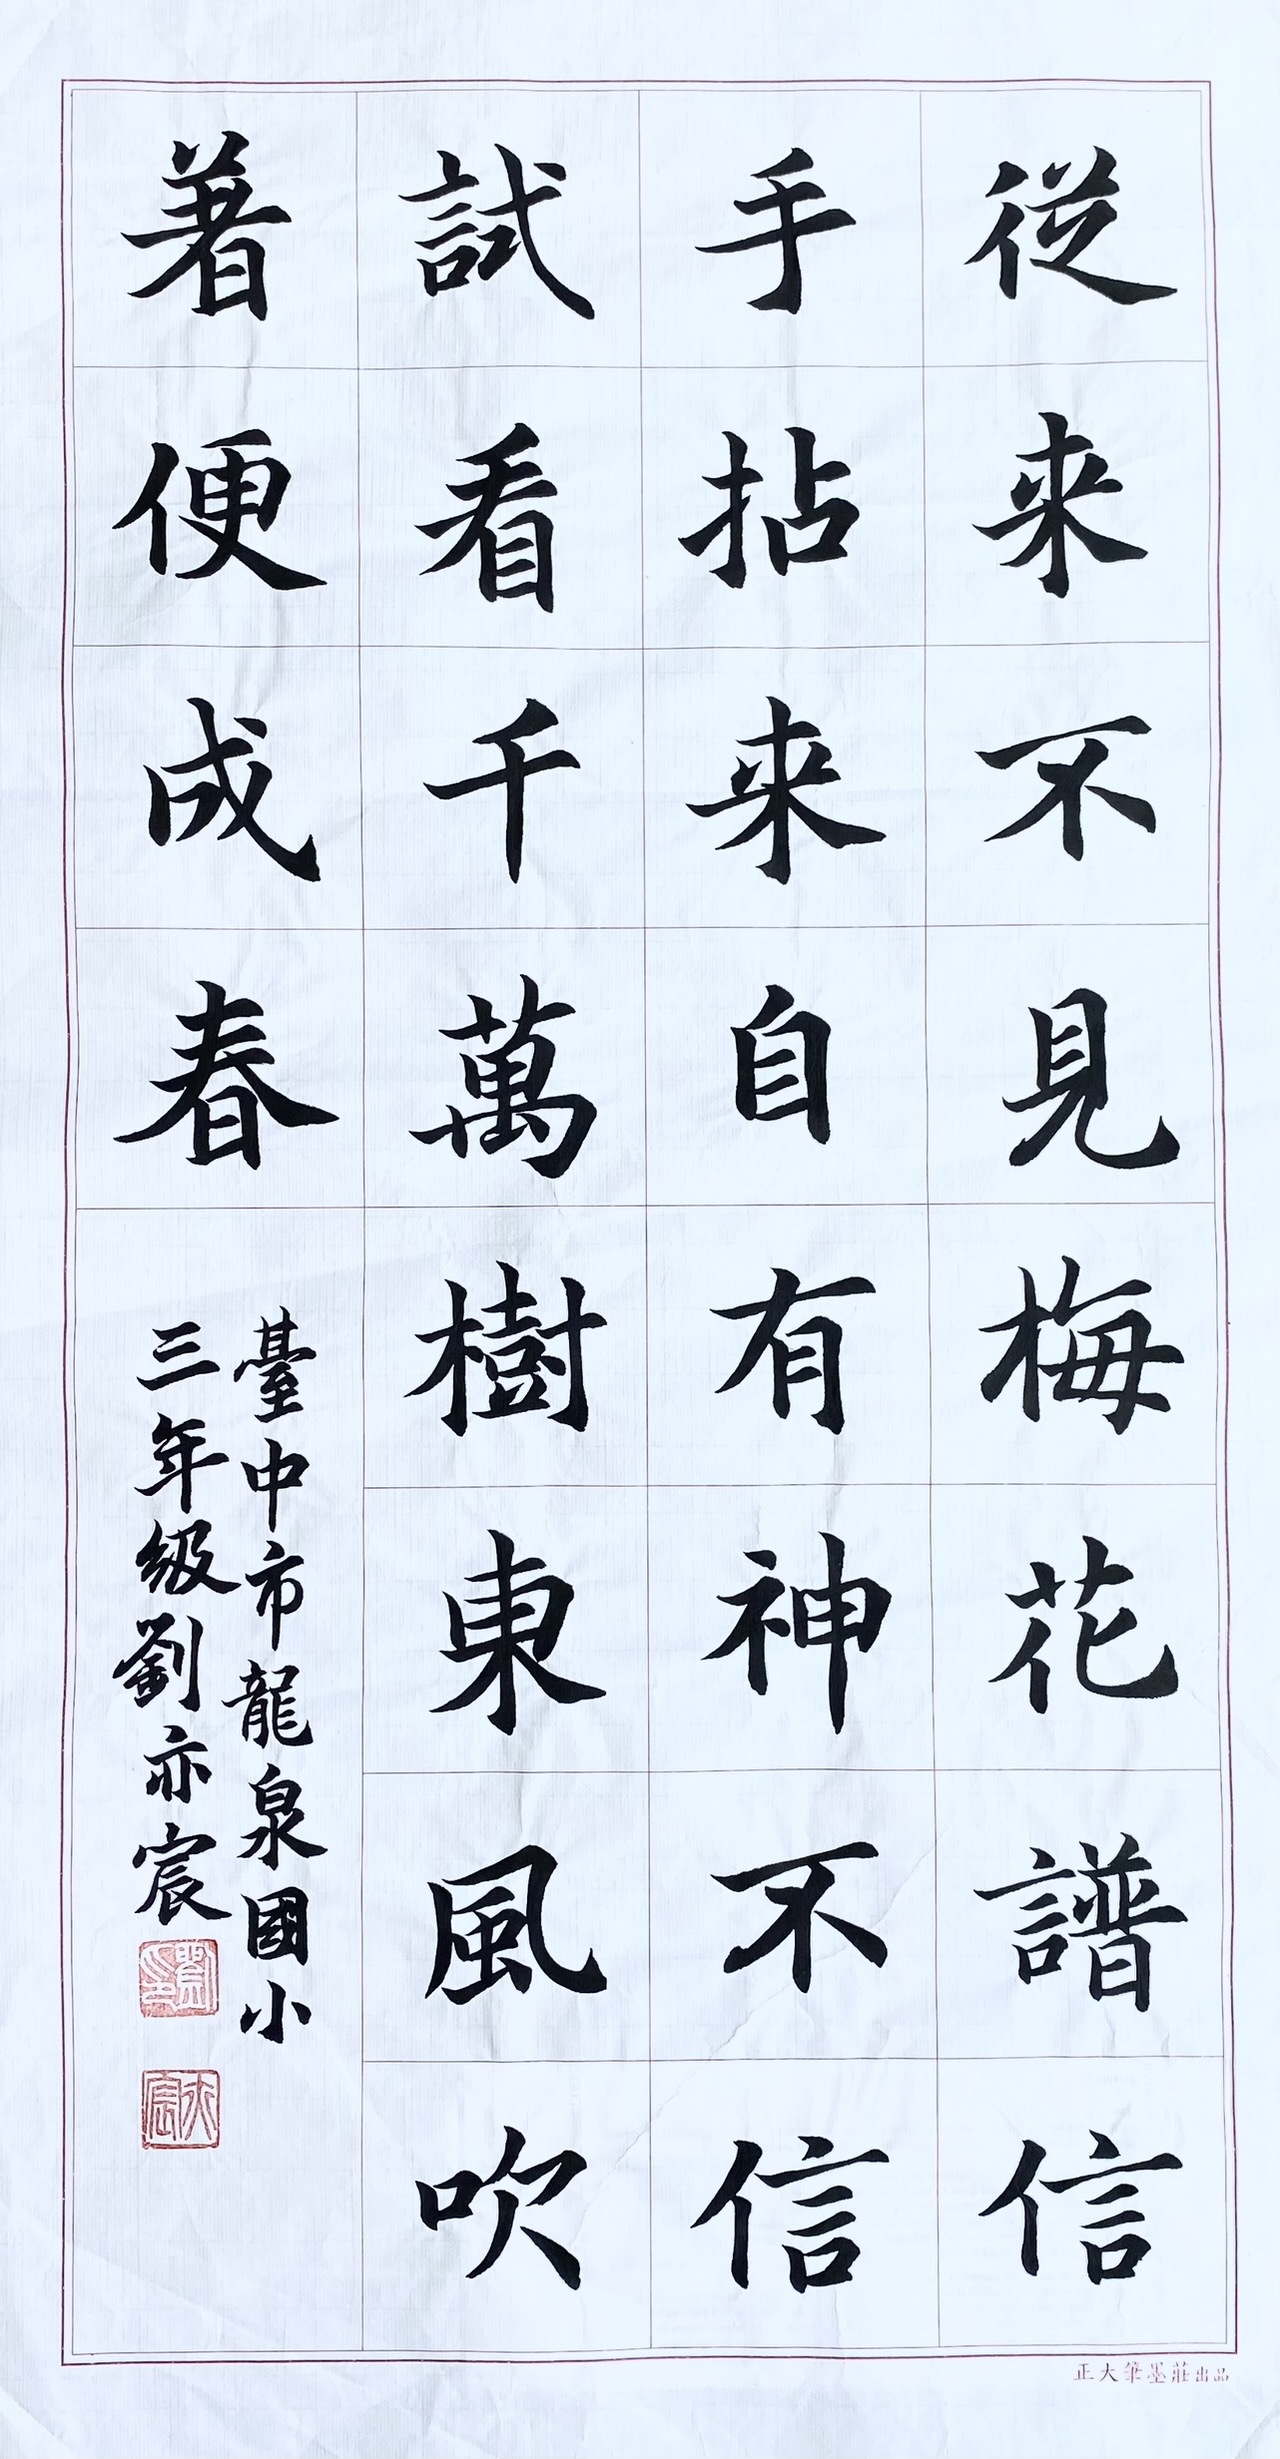 從来不見梅花譜信
手拈来自有神不信
試看千萬樹東風吹
著便成春
臺中市龍泉國小
三年級劉亦宸
劉印
亦宸
正大筆墨莊出品